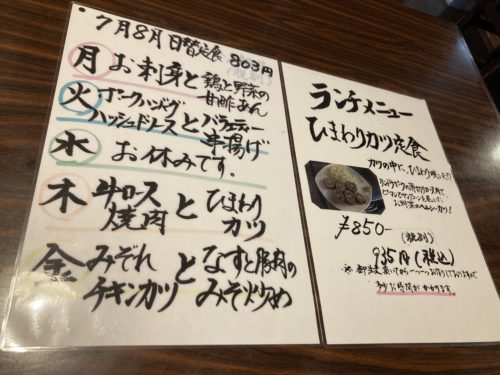 7月8月 日替定食 803円
月 お刺身と 鶏と野菜の
甘酢あん
火 ポークハンバーグ
ハッシュドソースと バラエティー
串揚げ
水 お休みです。
木 牛ロス
焼肉 と ひまわり
カツ
金 みぞれ
チキンカツ と なすと豚肉の
みそ炒め
ランチメニュー
ひまわりカツ定食
カツの中で、ひまわり
¥850-
(税別)
935円(税込)
多少お時間がかかります。